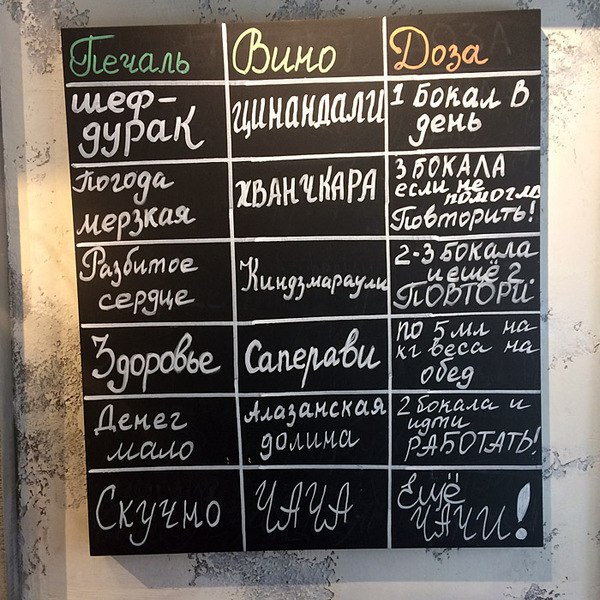 Печаль Вино Доза
шеф-
дурак
ЦИНАНДАЛИ
1 Бокал в
день
Погода
мерзкая
ХВАНЧКАРА
3 БОКАЛА
если не
помогло
Повторить!
Разбитое
сердце
Киндзмараули
2-3 бокала
и ещё 2.
ПОВТОРИ
Здоровье
Саперави
по 5 мл на
кг веса на
обед
Денег
мало
Алазанская
долина
2 бокала и
идти
РАБОТАТЬ!
Скучно
ЧАЧА
Ещё
ЧАЧИ!